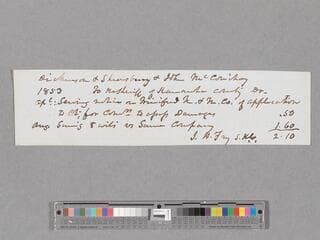 Dickinson & Shrewsbury & John McConihay
1853 To Sheriff of Kanawha county Dr.
Apl: Serving notice on Winifred M. & M. Co. of application
to Clk for Comrs to assess Damages .50
Aug Suing 8 writs vs Same Company 1.60
J. A. Fry S.K.C. 2.10